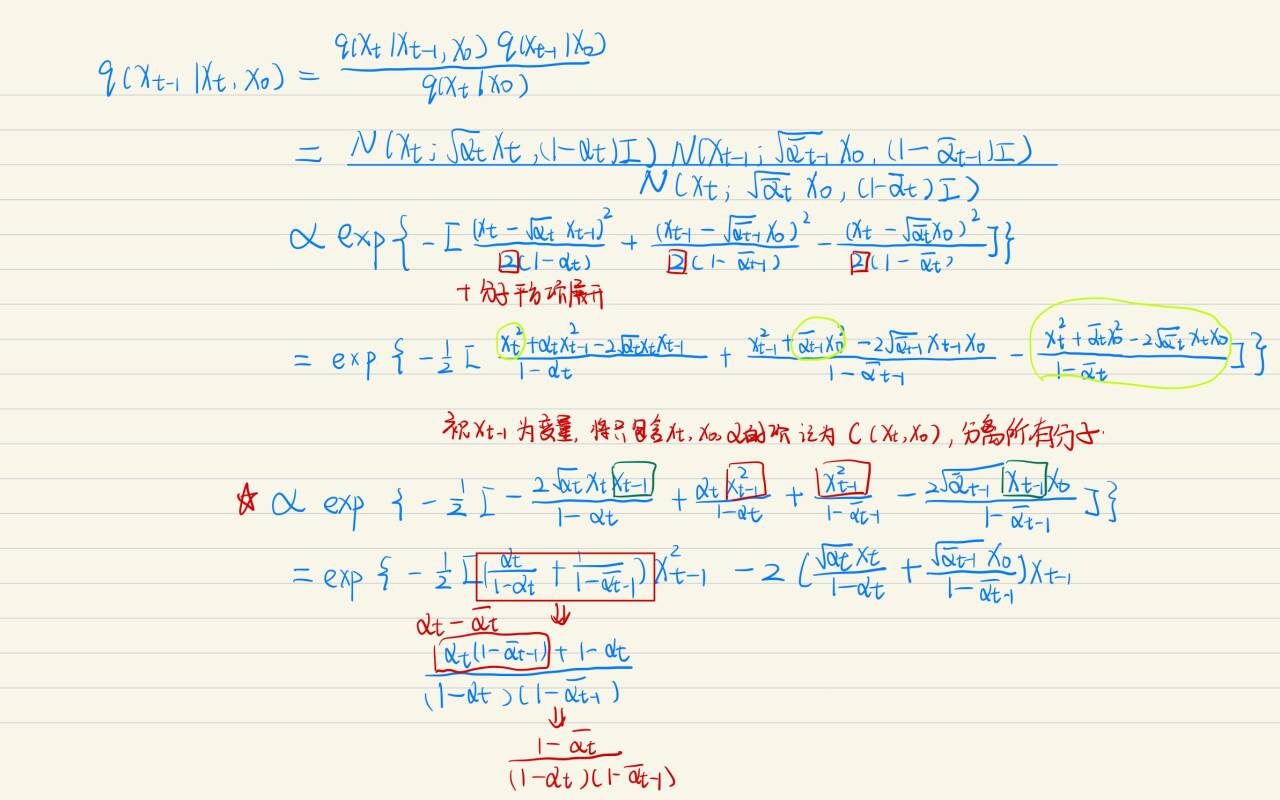 q(x_{t-1} | x_t, x_0) = \frac{q(x_t | x_{t-1}, x_0) q(x_{t-1} | x_0)}{q(x_t | x_0)}
= \frac{N(x_t; \sqrt{α_t} x_t, (1-α_t)I) N(x_{t-1}; \sqrt{\bar{α}_{t-1}} x_0, (1-\bar{α}_{t-1})I)}{N(x_t; \sqrt{\bar{α}_t} x_0, (1-\bar{α}_t)I)}
∝ exp{-[\frac{(x_t - \sqrt{α_t} x_{t-1})^2}{2(1-α_t)} + \frac{(x_{t-1} - \sqrt{\bar{α}_{t-1}} x_0)^2}{2(1-\bar{α}_{t-1})} - \frac{(x_t - \sqrt{\bar{α}_t} x_0)^2}{2(1-\bar{α}_t)}]}
+ 分子平方项展开
= exp{-\frac{1}{2}[\frac{x_t^2 + α_t x_{t-1}^2 - 2\sqrt{α_t} x_t x_{t-1}}{1-α_t} + \frac{x_{t-1}^2 + \bar{α}_{t-1} x_0^2 - 2\sqrt{\bar{α}_{t-1}} x_{t-1} x_0}{1-\bar{α}_{t-1}} - \frac{x_t^2 + \bar{α}_t x_0^2 - 2\sqrt{\bar{α}_t} x_t x_0}{1-\bar{α}_t}]}
视 x_{t-1} 为变量, 将只包含 x_t, x_0, α 的项 记为 C(x_t, x_0), 分离所有分子.
☆ ∝ exp {-\frac{1}{2}[-\frac{2\sqrt{α_t} x_t x_{t-1}}{1-α_t} + \frac{α_t x_{t-1}^2}{1-α_t} + \frac{x_{t-1}^2}{1-\bar{α}_{t-1}} - \frac{2\sqrt{\bar{α}_{t-1}} x_{t-1} x_0}{1-\bar{α}_{t-1}}]}
= exp{-\frac{1}{2}[(\frac{α_t}{1-α_t} + \frac{1}{1-\bar{α}_{t-1}}) x_{t-1}^2 - 2(\frac{\sqrt{α_t} x_t}{1-α_t} + \frac{\sqrt{\bar{α}_{t-1}} x_0}{1-\bar{α}_{t-1}}) x_{t-1}
α_t - \bar{α}_t ⇓
\frac{α_t(1-\bar{α}_{t-1}) + 1-α_t}{(1-α_t)(1-\bar{α}_{t-1})}
⇓
\frac{1-\bar{α}_t}{(1-α_t)(1-\bar{α}_{t-1})}